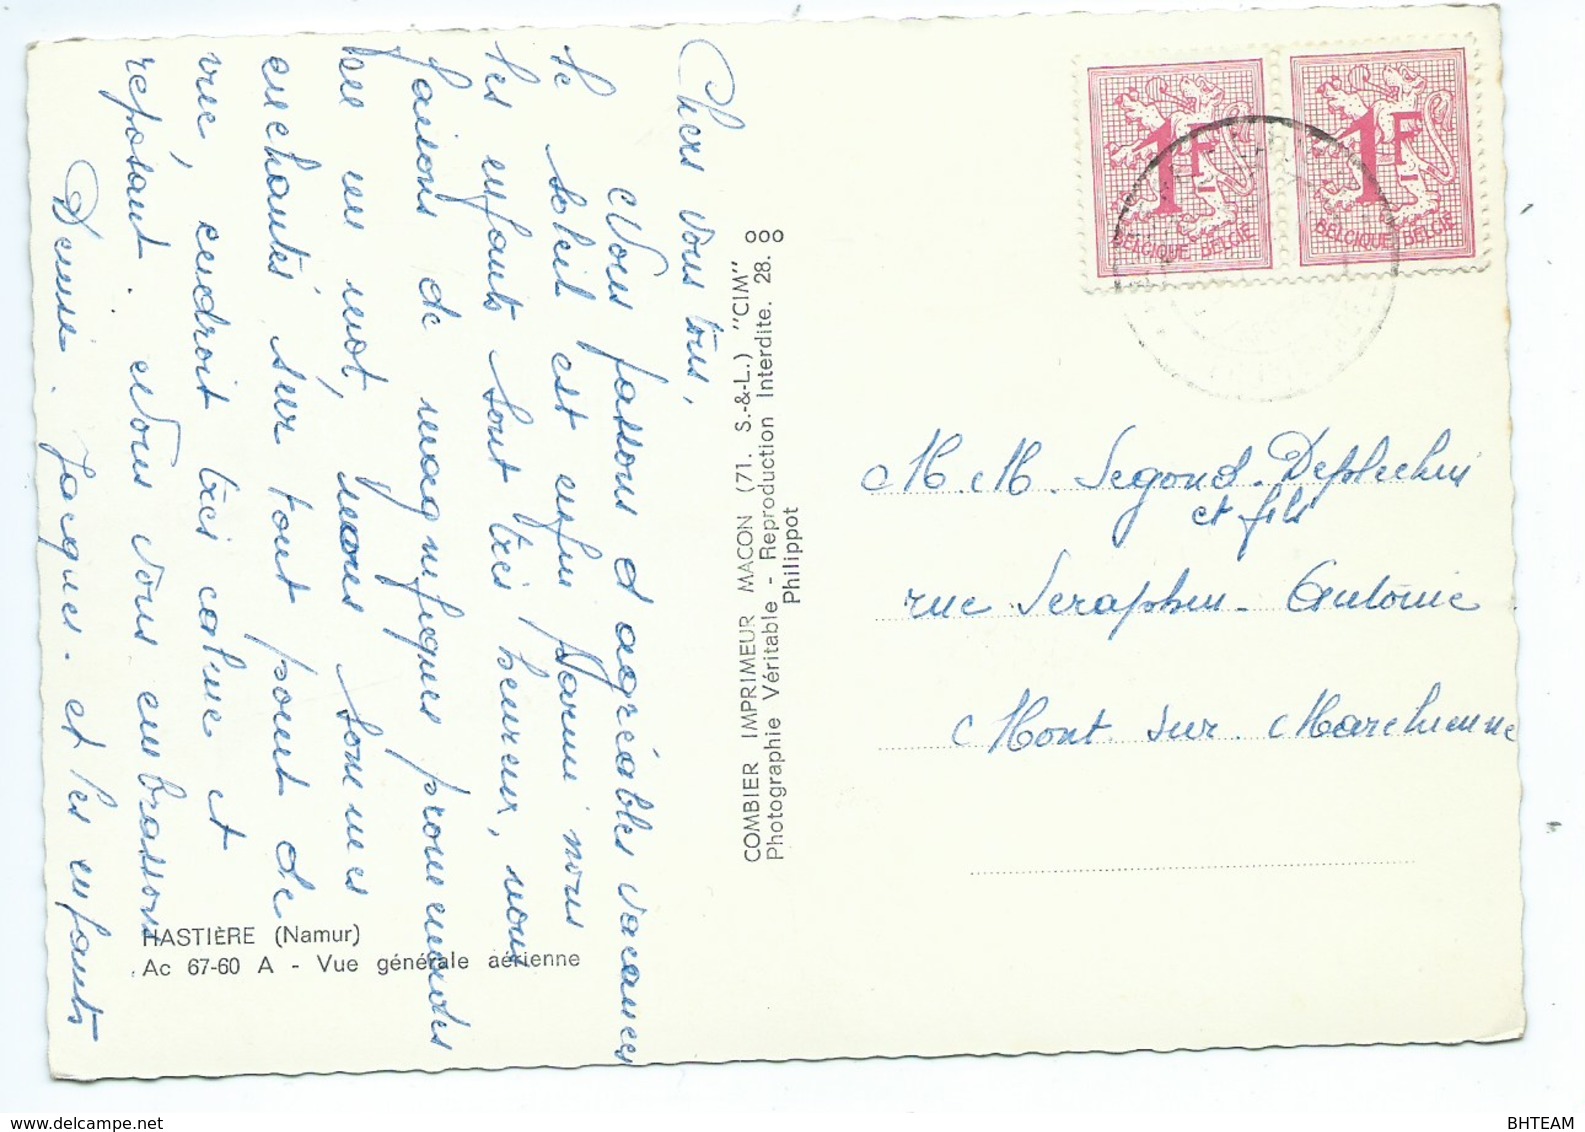 Chers vous tous,
Nous passons d'agréables vacances
le soleil est enfin parmi nous
les enfants sont très heureux, nous
faisons de magnifiques promenades
en un mot, nous sommes
enchantés sur tout point de
vue, endroit très calme et
reposant. Nous vous embrassons
Denise. Jacques. et les enfants
HASTIÈRE (Namur)
Ac 67-60 A - Vue générale aérienne
COMBIER IMPRIMEUR MACON (71. S.-&-L.) "CIM"
Photographie Véritable - Reproduction Interdite. 28.
Philippot
1F
BELGIQUE BELGIË
1F
BELGIQUE BELGIË
M. M. Segond. Deplechin
et fils
rue Seraphin - Antoine
Mont sur Marchienne
BHTEAM